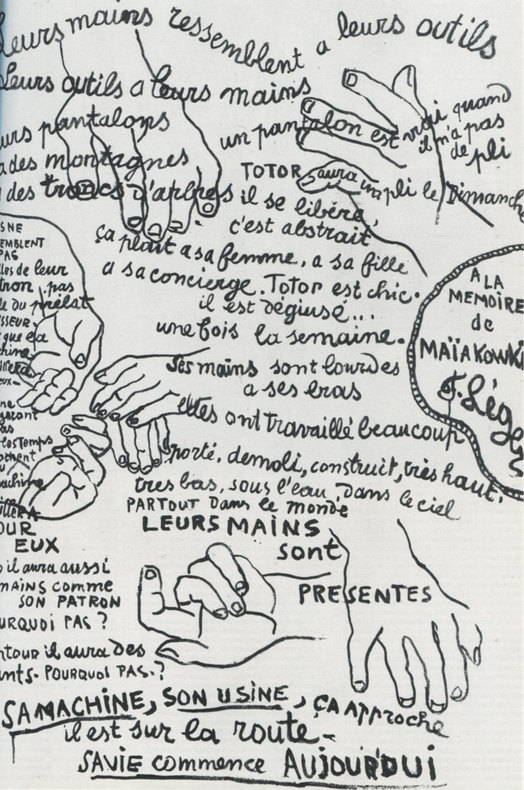 Leurs mains ressemblent a leurs outils
Leurs outils a leurs mains
urs pantalons
a des montagnes
a des troncs d'arbres
un pantalon est vrai quand
il n'a pas
de pli
TOTOR aura un pli le Dimanche
il se libère,
c'est abstrait
ça plait a sa femme, a sa fille
a sa concierge. Totor est chic.
il est déguisé...
une fois la semaine.
SNE
EMBLENT
PAS
lles de leur
tron, pas
le du prélat
SSEUR
que ça
chine
eux-
ne
les temps
ochent
machine
OUR
EUX
A LA
MEMOIRE
de
MAÏAKOWKI
F. Léger
ses mains sont lourdes
a ses bras
elles ont travaillé beaucoup
porté, demoli, construit, très haut.
tres bas, sous l'eau, dans le ciel
PARTOUT Dans le monde
LEURS MAINS
sont
PRESENTES
il aura aussi
MAINS comme
SON PATRON
URQUOI PAS ?
ntour il aura des
nts. POURQUOI PAS. ?
SA MACHINE, SON USINE, ÇA APProche
il est sur la route -
SA VIE commence AUJOURD'UI